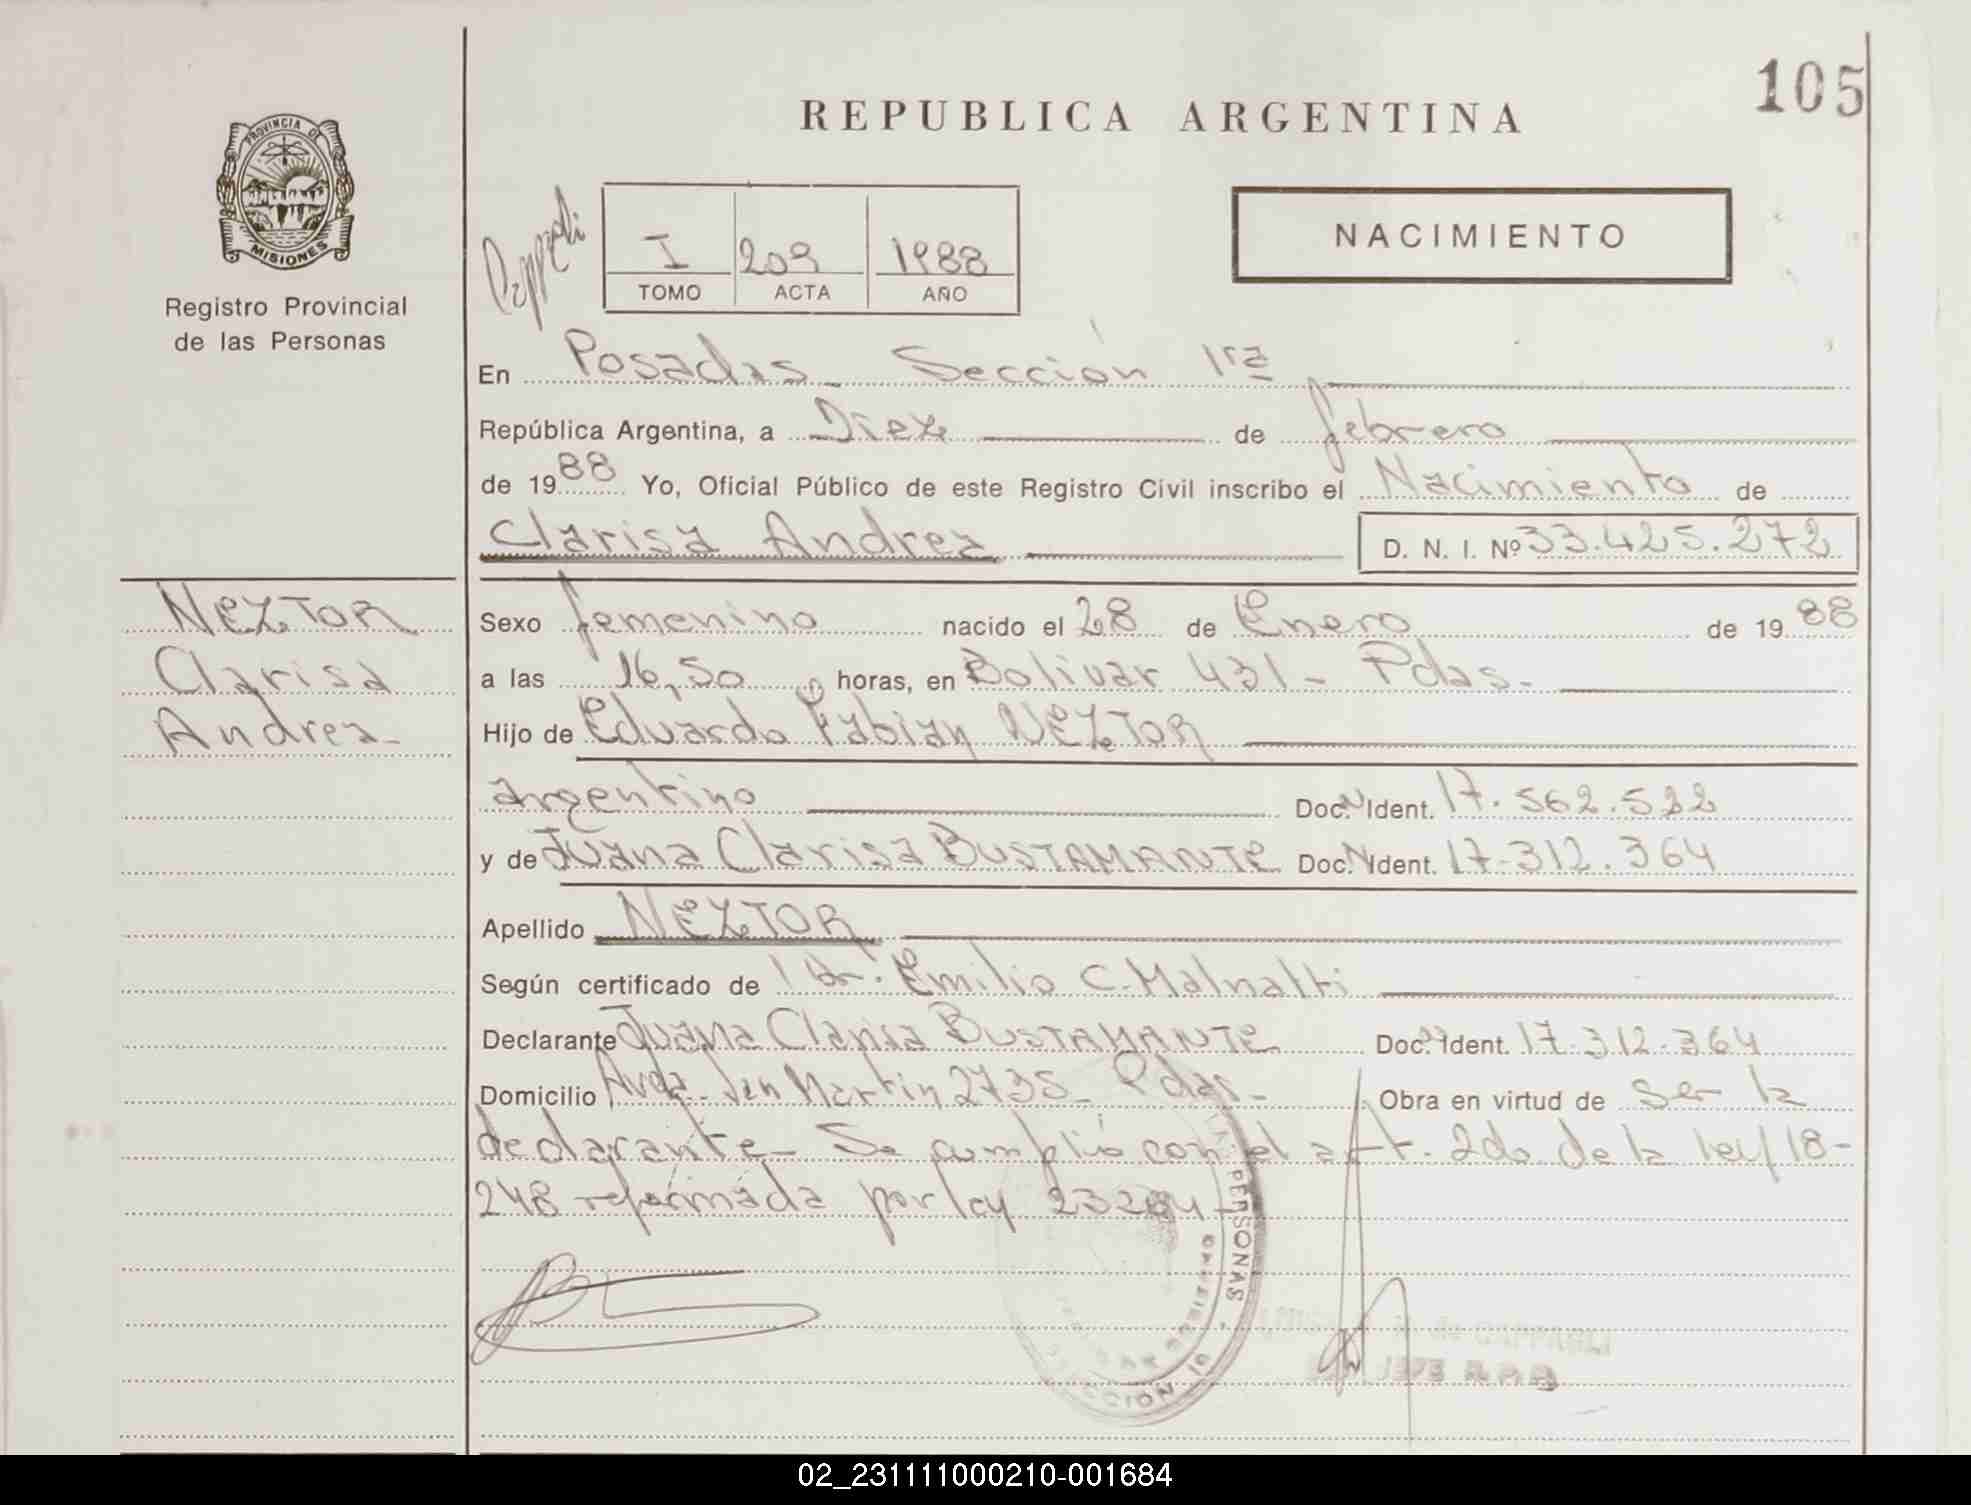 105
REPUBLICA ARGENTINA
PROVINCIA DE
MISIONES
Registro Provincial
de las Personas
I 209 1988
TOMO ACTA AÑO
NACIMIENTO
En Posadas - Sección 1ra
República Argentina, a Diez de febrero
de 1988 Yo, Oficial Público de este Registro Civil inscribo el Nacimiento de
Clarisa Andrea D. N. I. Nº 33.425.272
NEZTOR
Clarisa
Andrea-
Sexo femenino nacido el 28 de Enero de 1988
a las 16,50 horas, en Bolivar 431 - Pdas-
Hijo de Eduardo Fabian NEZTOR
argentino Doc. Ident. 17.562.522
y de Juana Clarisa BUSTAMANTE Doc. Ident. 17-312.364
Apellido NEZTOR
Según certificado de Dr. Emilio C. Malnatti
Declarante Juana Clarisa BUSTAMANTE Doc. Ident. 17.312.364
Domicilio Avda. San Martin 2735- Pdas- Obra en virtud de ser la
declarante- Se cumplió con el art. 2do de la ley 18-
248 reformada por ley 23264-
PERSONAS
02_231111000210-001684